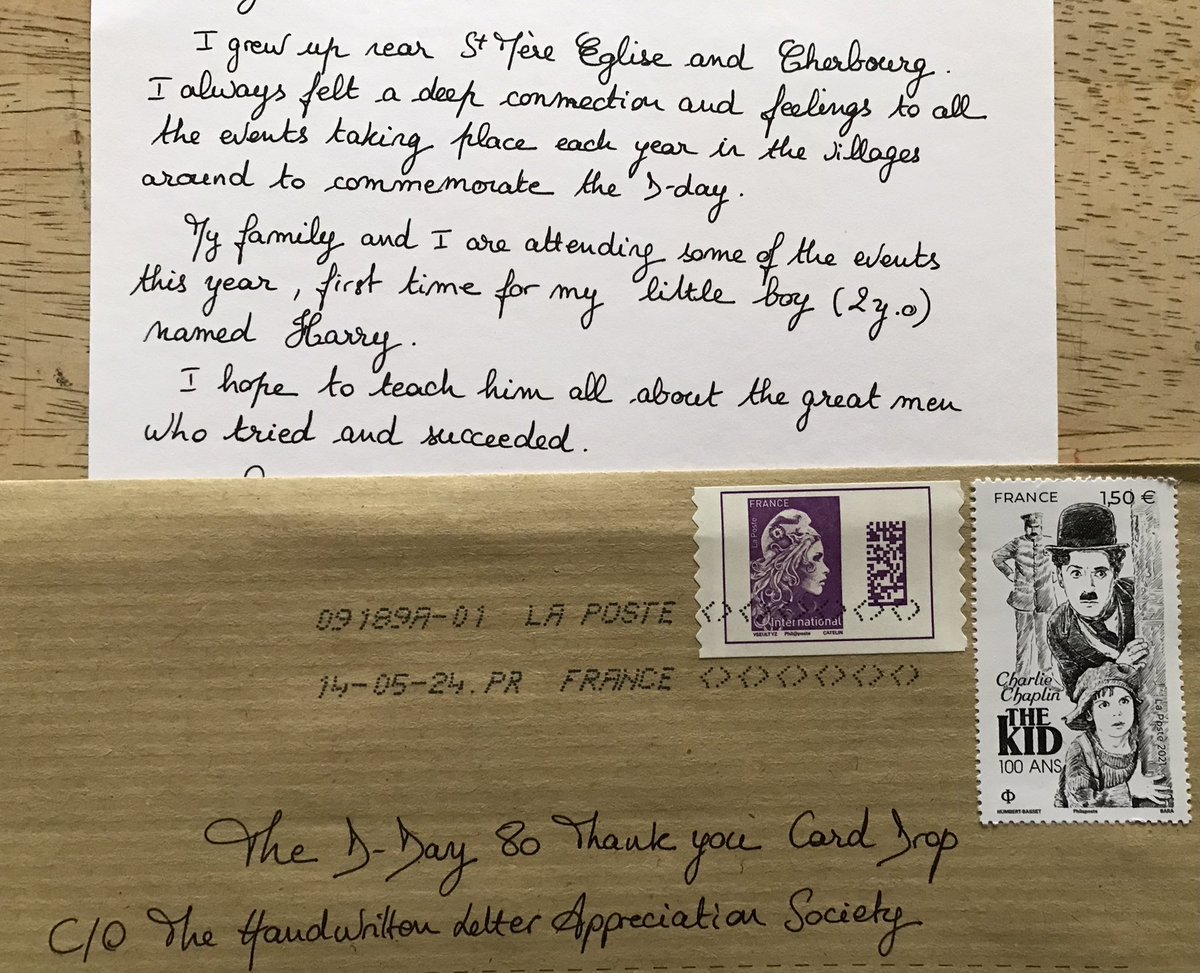 I grew up near St Mère Eglise and Cherbourg.
I always felt a deep connection and feelings to all
the events taking place each year in the villages
around to commemorate the D-day.
My family and I are attending some of the events
this year, first time for my little boy (2y.o)
named Harry.
I hope to teach him all about the great men
who tried and succeeded.
FRANCE
La Poste
International
YSEULT YZ Phil@poste CATELIN
FRANCE 1,50 €
Charlie
Chaplin
THE
KID
100 ANS
La Poste 2021
HUMBERT-BASSET Philaposte BARA
09189A-01 LA POSTE
14-05-24.PR FRANCE
The D-Day 80 Thank you Card Drop
C/O The Handwritten Letter Appreciation Society